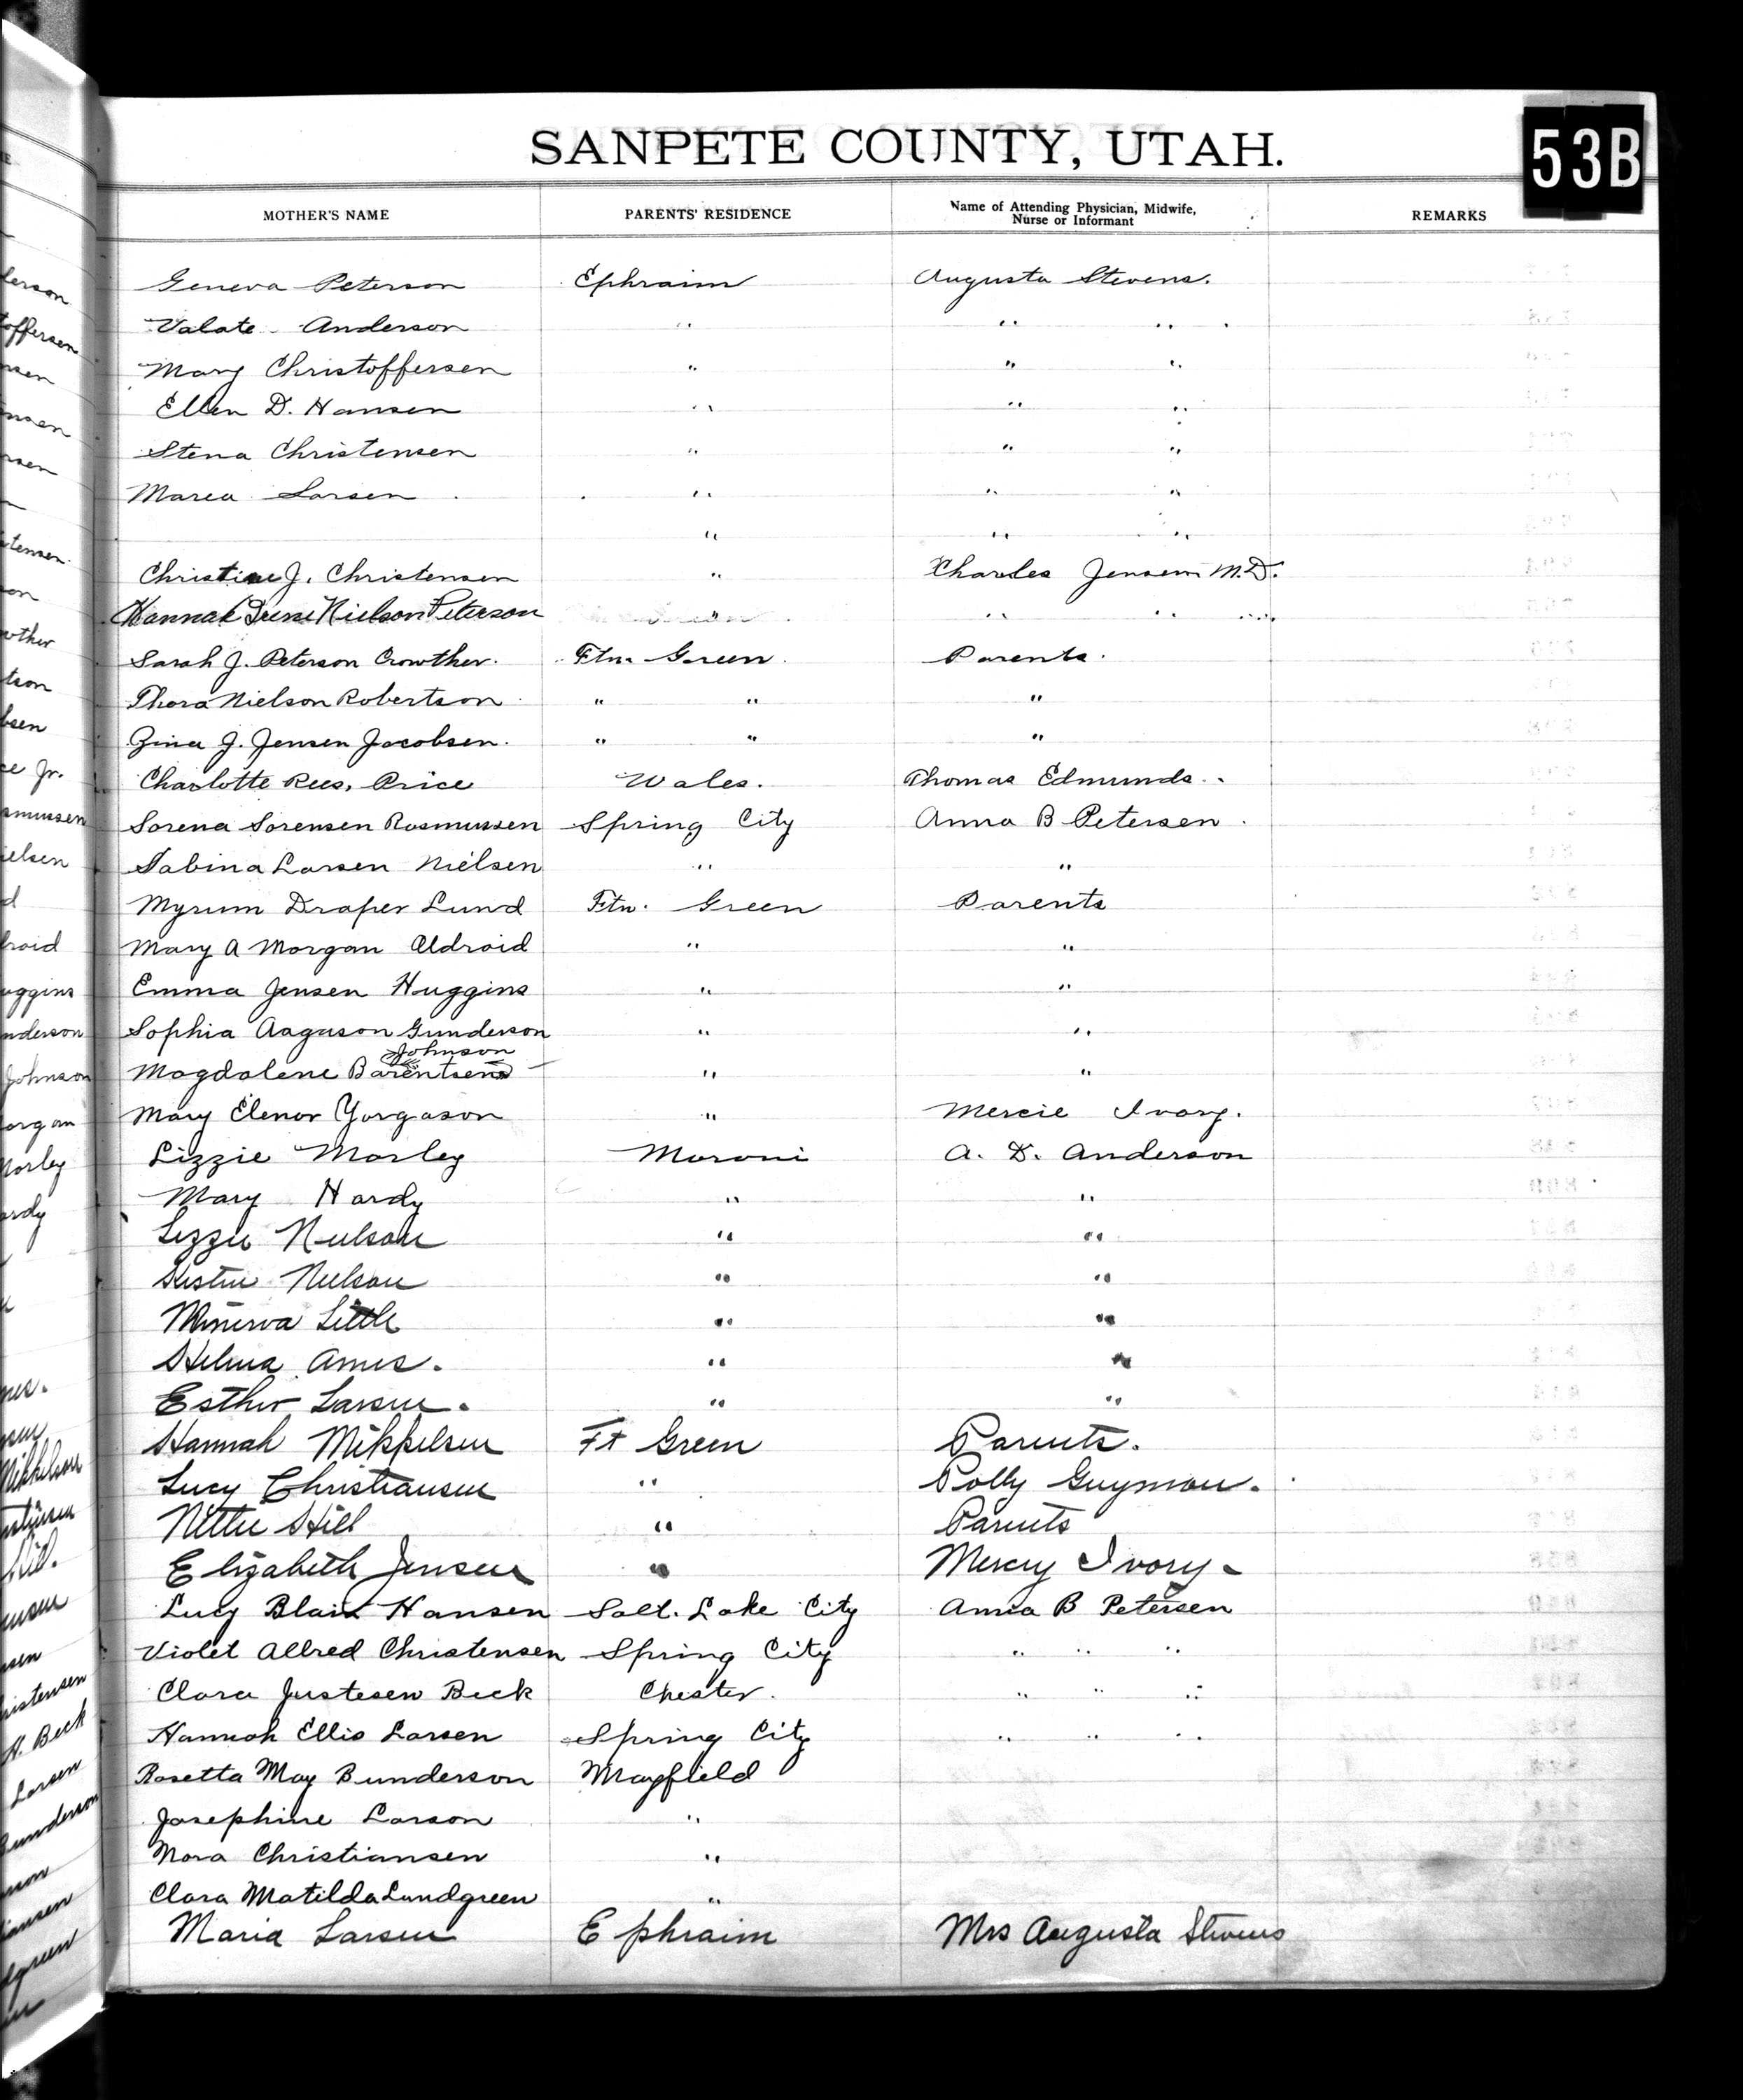 SANPETE COUNTY, UTAH.
53B
MOTHER'S NAME PARENTS' RESIDENCE Name of Attending Physician, Midwife, Nurse or Informant REMARKS
Geneva Peterson Ephraim Augusta Stevens.
Valate Anderson " " "
Mary Christoffersen " " "
Ellen D. Hansen " " "
Stena Christensen " " "
Maria Larsen " " "
" " "
Christine J. Christensen " Charles Jensen M.D.
Hannah Irene Nielson Peterson " " "
Sarah J. Peterson Crowther. Ftn. Green Parents.
Thora Nielson Robertson " " "
Zina J. Jensen Jacobsen. " " "
Charlotte Rees, Price Wales. Thomas Edmunds.
Sorena Sorensen Rasmussen Spring City Anna B Petersen.
Sabina Larsen Nielsen " "
Myrum Draper Lund Ftn. Green Parents
Mary A Morgan Aldroid " "
Emma Jensen Huggins " "
Sophia Aagason Gunderson " "
Johnson
Magdalene Barentsen " "
Mary Elenor Yorgason " Mercie Ivory.
Lizzie Morley Moroni A. D. Anderson
Mary Hardy " "
Lizzie Neilson " "
Neilson " "
Minerva Little " "
Hilma Ames. " "
Esther Larsen. " "
Hannah Mikkelsen Ft Green Parents.
Lucy Christiansen " Polly Guymon.
Nettie Hill " Parents
Elizabeth Jensen " Mercy Ivory
Lucy Blain Hansen Salt. Lake City Anna B Petersen
Violet Allred Christensen Spring City " " "
Clara Justesen Beck Chester. " " "
Hannah Ellis Larsen Spring City " " "
Rosetta May Bunderson Mayfield
Josephine Larson "
Nora Christiansen "
Clara Matilda Lundgreen "
Maria Larsen Ephraim Mrs Augusta Stevens